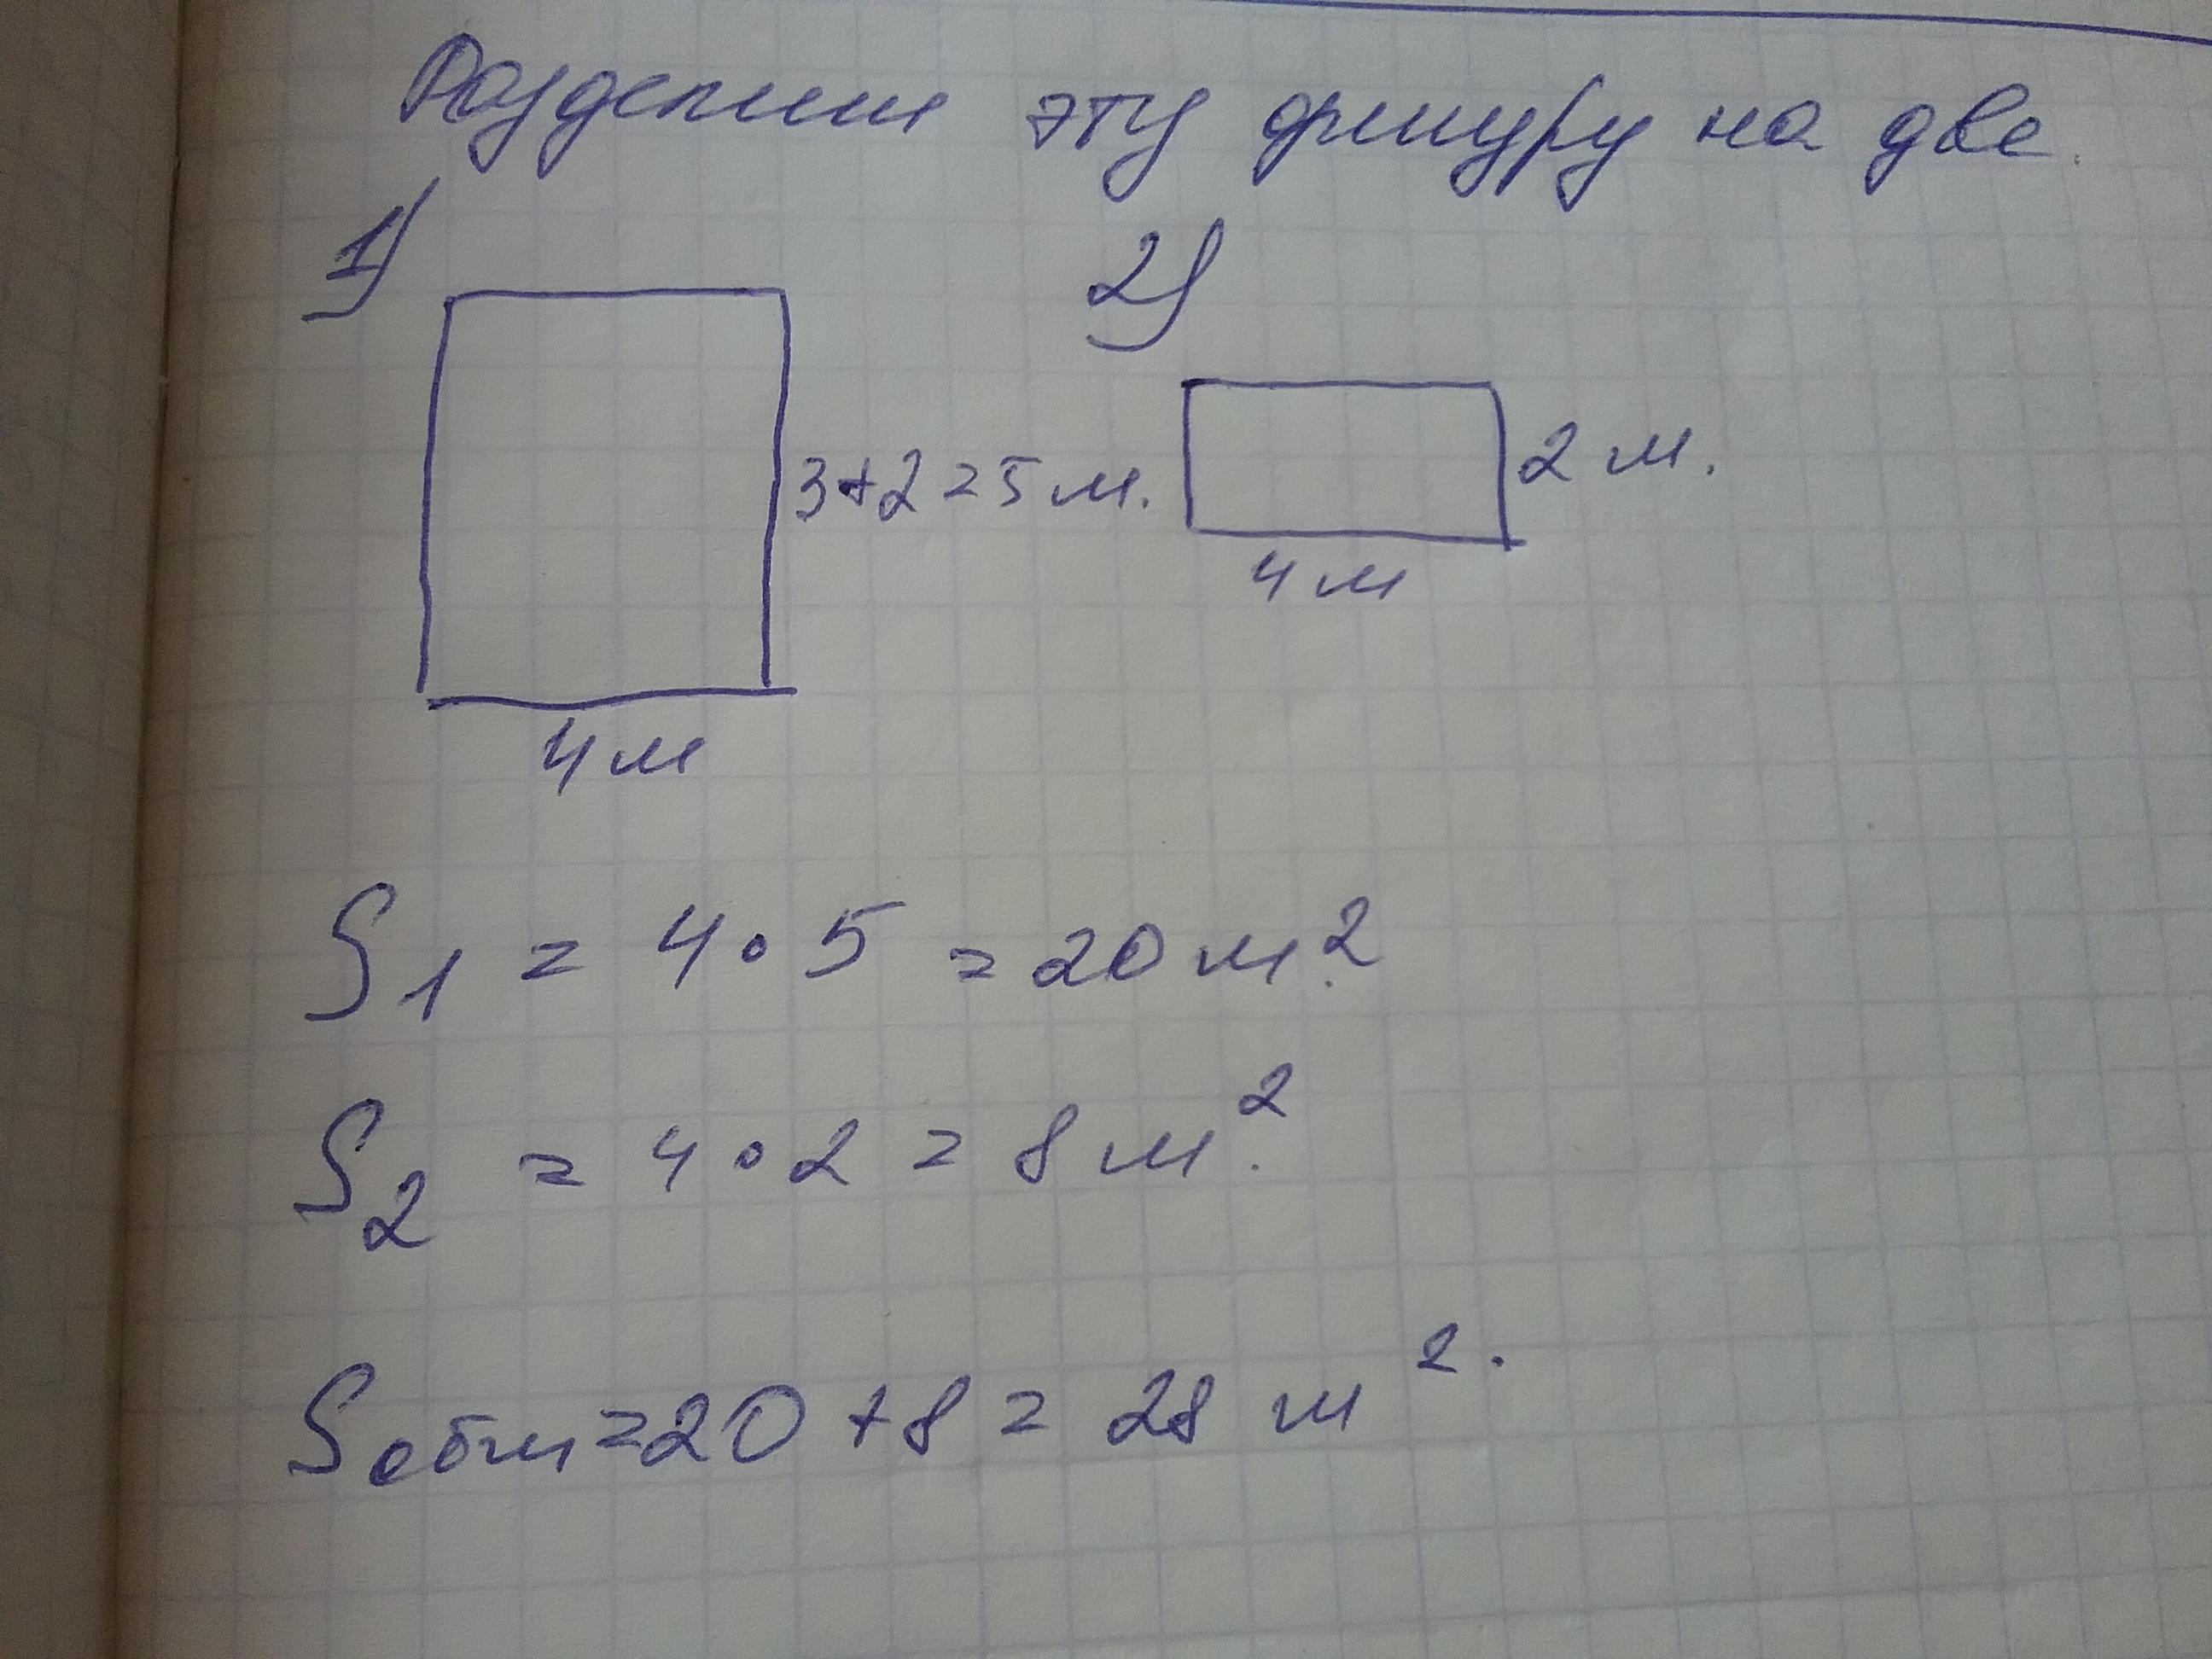 Разделим эту фигуру на две.
1) 2)
3+2=5 м. 2 м.
4 м
4 м
S1 = 4 · 5 = 20 м.²
S2 = 4 · 2 = 8 м.²
Sобщ = 20 + 8 = 28 м².